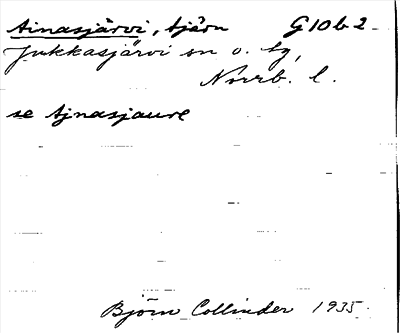 Ainasjärvi, tjärn G10b2
Jukkasjärvi sn o. tg,
Norrb. l.
se Ajnasjaure
Björn Collinder 1935